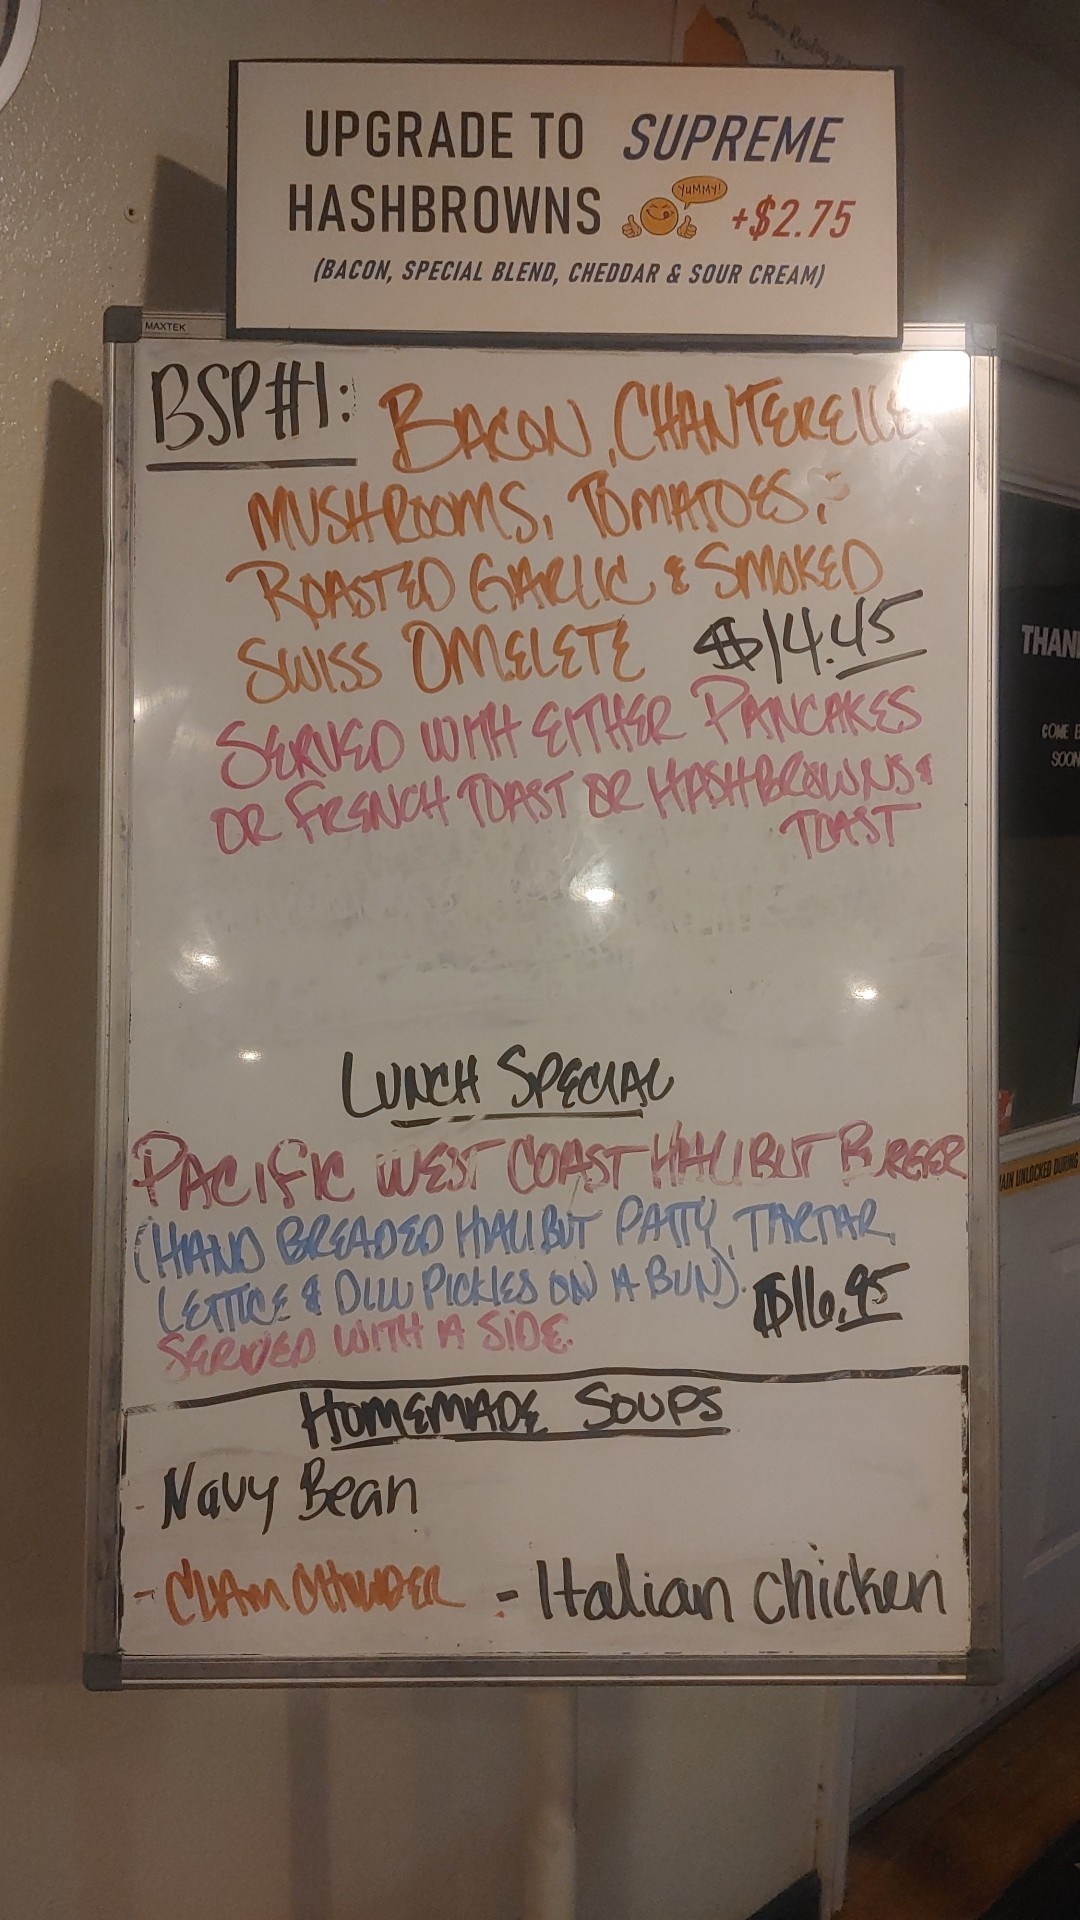 UPGRADE TO SUPREME
HASHBROWNS YUMMY! +$2.75
(BACON, SPECIAL BLEND, CHEDDAR & SOUR CREAM)
MAXTEK
BSP#1: BACON, CHANTERELLE
MUSHROOMS, TOMATOES,
ROASTED GARLIC & SMOKED
SWISS OMELETE $14.45
SERVED WITH EITHER PANCAKES
OR FRENCH TOAST OR HASHBROWNS &
TOAST
LUNCH SPECIAL
PACIFIC WEST COAST HALIBUT BURGER
(HAND BREADED HALIBUT PATTY, TARTAR,
LETTICE & DILL PICKLES ON A BUN). $16.95
SERVED WITH A SIDE.
HOMEMADE SOUPS
- Navy Bean
- CLAM CHOWDER - Italian chicken
THAN
COME B
SOON
AIN UNLOCKED DURING